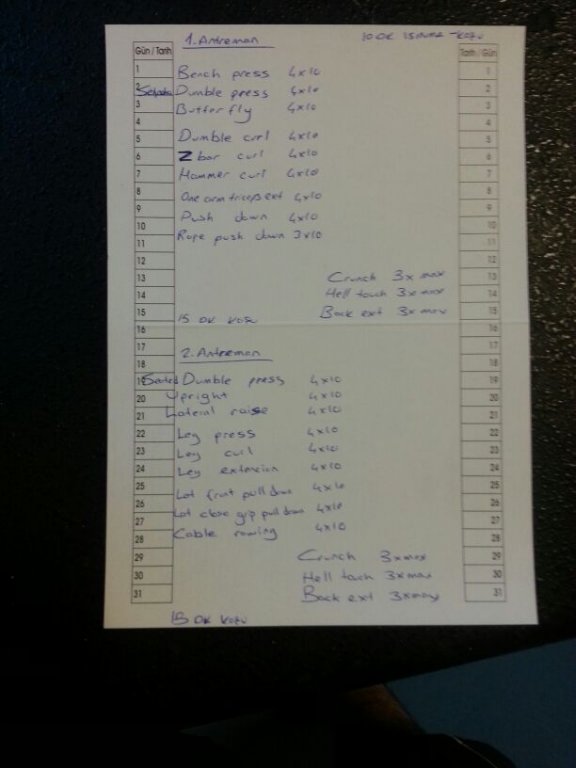 1. Antreman
10 DK ISINMA - KOŞU
Gün / Tarih
Tarih / Gün
1 Bench press 4x10 1
2 Dumble press 4x10 2
3 Butterfly 4x10 3
4 4
5 Dumble curl 4x10 5
6 Z bar curl 4x10 6
7 Hammer curl 4x10 7
8 One arm triceps ext 4x10 8
9 Push down 4x10 9
10 10
11 Rope push down 3x10 11
12 12
13 Crunch 3x max 13
14 Hell touch 3x max 14
15 Back ext 3x max 15
15 DK KOŞU
16 16
17 2. Antreman 17
18 18
19 Seated Dumble press 4x10 19
20 Upright 4x10 20
21 Lateral raise 4x10 21
22 Leg press 4x10 22
23 Leg curl 4x10 23
24 Leg extension 4x10 24
25 Lat front pull down 4x10 25
26 Lat close grip pull down 4x10 26
27 27
28 Cable rowing 4x10 28
29 Crunch 3x max 29
30 Hell touch 3x max 30
31 Back ext 3x max 31
15 DK KOŞU